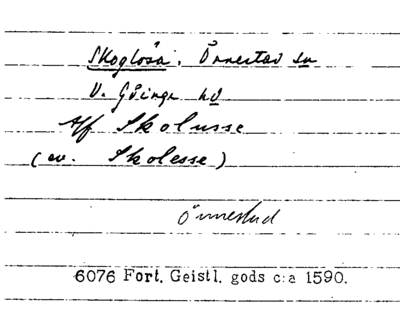 Skoglösa, Önnestad sn
V. Göinge hd
Aff Skolusse
(ev. Skolesse)
Önnestad
6076 Fort. Geistl. gods c:a 1590.